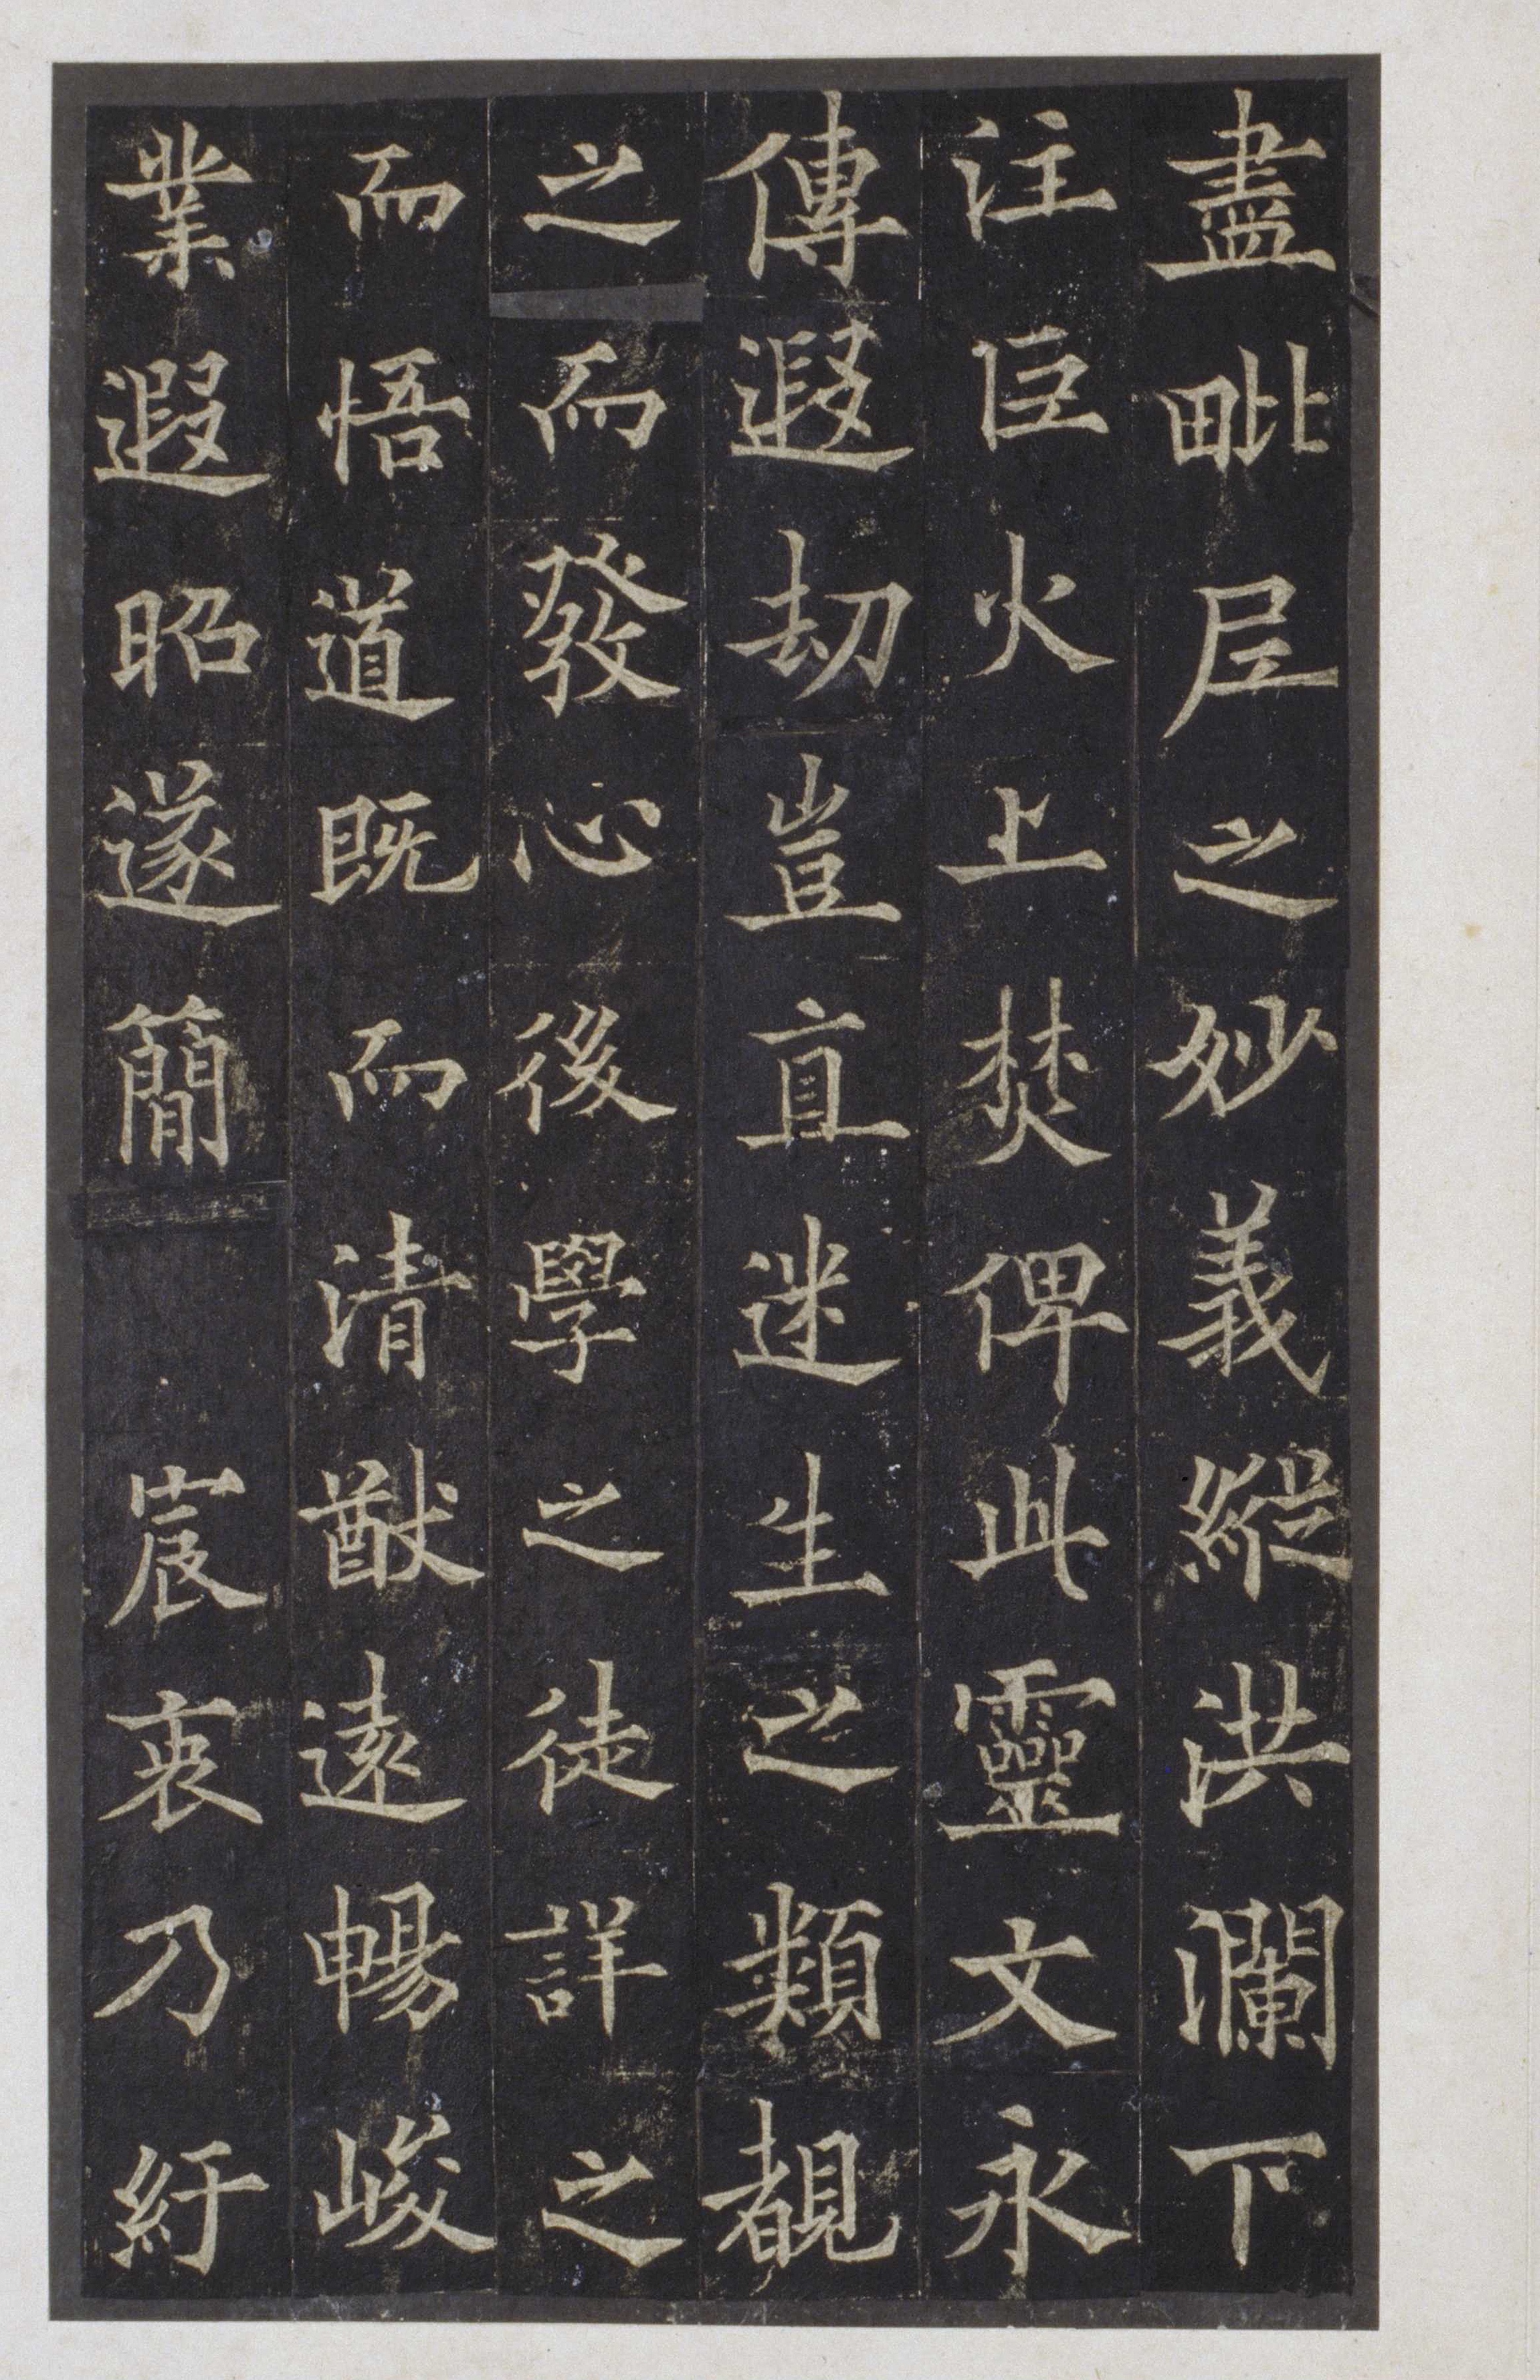 盡毗尼之妙義縱洪瀾下
注巨火上焚俾此靈文永
傳遐劫豈直迷生之類覩
之而發心後學之徒詳之
而悟道既而清猷遠暢峻
業遐昭遂簡宸衷乃紆